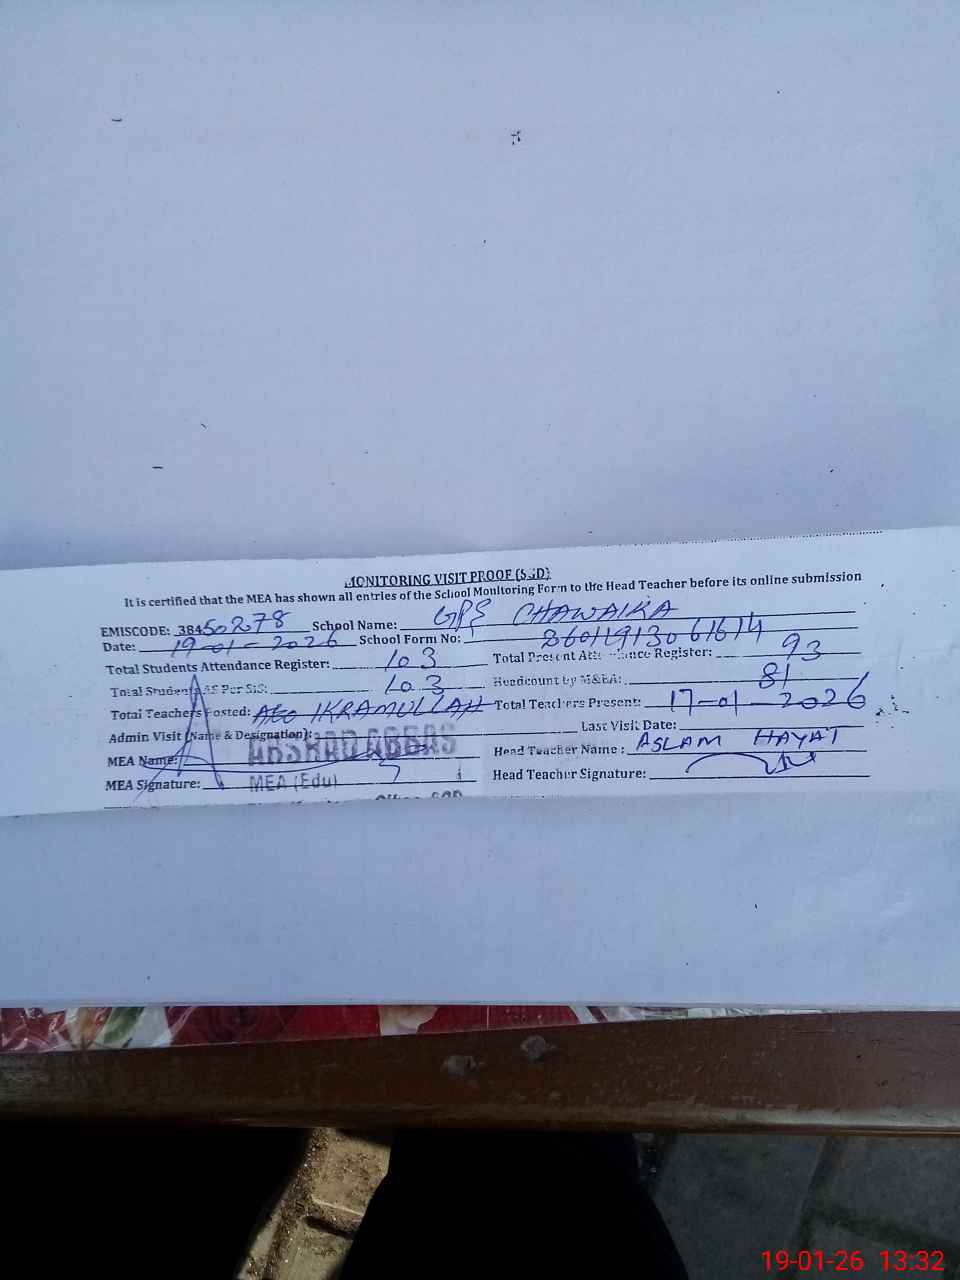 MONITORING VISIT PROOF (SGD)
It is certified that the MEA has shown all entries of the School Monitoring Form to the Head Teacher before its online submission
EMISCODE: 38450278 School Name: GPS CHAWAIKA
Date: 19-01-2026 School Form No: 86011913061614
Total Students Attendance Register: 103 Total Present Attendance Register: 93
Total Students AS Per SIS: 103 Headcount by M&EA: 81
Total Teachers Posted: AEO IKRAMULLAH Total Teachers Present: 17-01-2026
Admin Visit (Name & Designation): Last Visit Date:
MEA Name: ARSHAD ABBAS Head Teacher Name: ASLAM HAYAT
MEA Signature: MEA (Edu) Head Teacher Signature:
19-01-26 13:32